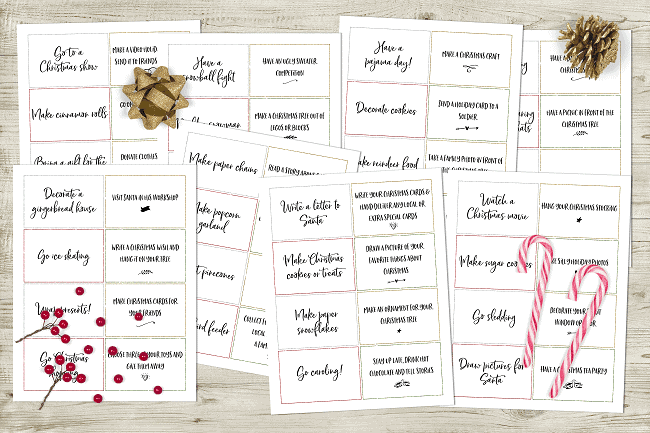 Go to a
Christmas show
MAKE A VIDEO AND
SEND IT TO FRIENDS
Make cinnamon rolls
DONATE CLOTHES
Have a
snowball fight
HAVE AN UGLY SWEATER
COMPETITION
MAKE A CHRISTMAS TREE OUT OF
LEGOS OR BLOCKS
Have a
pajama day!
MAKE A CHRISTMAS CRAFT
Decorate cookies
SEND A HOLIDAY CARD TO A
SOLDIER
Make reindeer food
TAKE A FAMILY PHOTO IN FRONT OF
HAVE A PICNIC IN FRONT OF THE
CHRISTMAS TREE
Decorate a
gingerbread house
VISIT SANTA IN HIS WORKSHOP
Go ice skating
WRITE A CHRISTMAS WISH AND
HANG IT ON YOUR TREE
presents!
MAKE CHRISTMAS CARDS FOR
YOUR FRIENDS
Go Christmas
YOUR TOYS AND
GIVE THEM AWAY
Make paper chains
READ A STORY
Make popcorn
garland
pinecones
feeder
Write a letter to
Santa
WRITE YOUR CHRISTMAS CARDS &
HAND DELIVER ANY LOCAL OR
EXTRA SPECIAL CARDS
Make Christmas
cookies or treats
DRAW A PICTURE OF YOUR
FAVORITE THINGS ABOUT
CHRISTMAS
Make paper
snowflakes
MAKE AN ORNAMENT FOR YOUR
CHRISTMAS TREE
Go caroling!
STAY UP LATE, DRINK HOT
CHOCOLATE AND TELL STORIES
Watch a
Christmas movie
HANG YOUR CHRISTMAS STOCKING
Make sugar cookies
SILLY HOLIDAY PHOTOS
Go sledding
DECORATE YOUR
WINDOW OR
Draw pictures for
Santa
HAVE A CHRISTMAS TEA PARTY